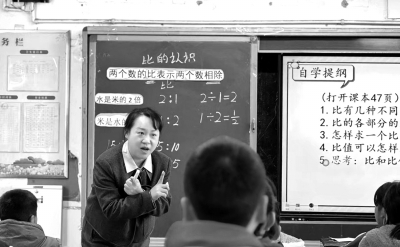 务栏
比的认识
两个数的比表示两个数相除
比
水是米的2倍 2:1 2÷1=2
米是水的 :2 1÷2=1/2
15:
:5
自学提纲
(打开课本47页)
1. 比有几种不同
2. 比的各部分的
3. 怎样求一个比
4. 比值可以怎样
5 思考：比和比